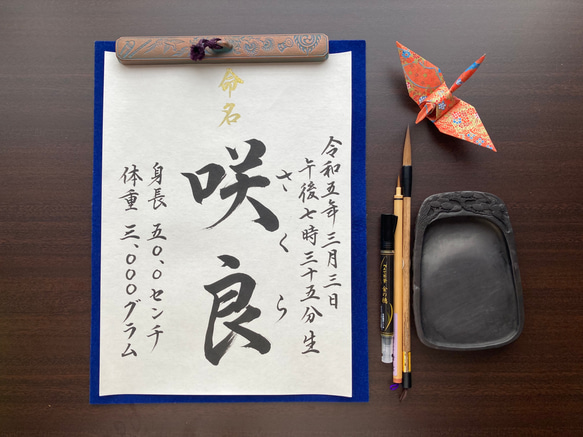 命名
令和五年三月三日
午後七時三十五分生
咲良
さくら
身長 五〇.〇センチ
体重 三.〇〇〇グラム